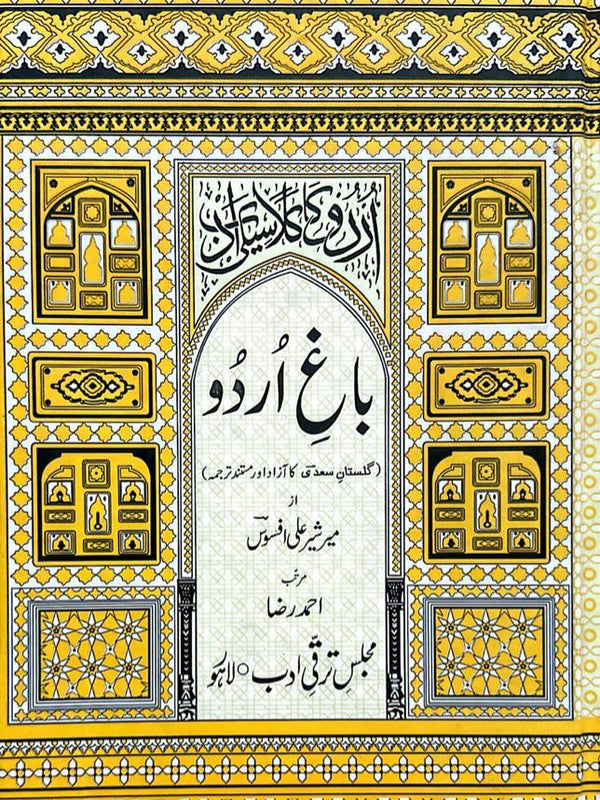 اُردُو کا کلاسیکی ادب
باغِ اُردُو
(گلستانِ سعدیؔ کا آزاد اور مستند ترجمہ)
از
میر شیر علی افسوسؔ
مرتّبہ
احمد رضا
مجلس ترقّیِ ادب ○ لاہور